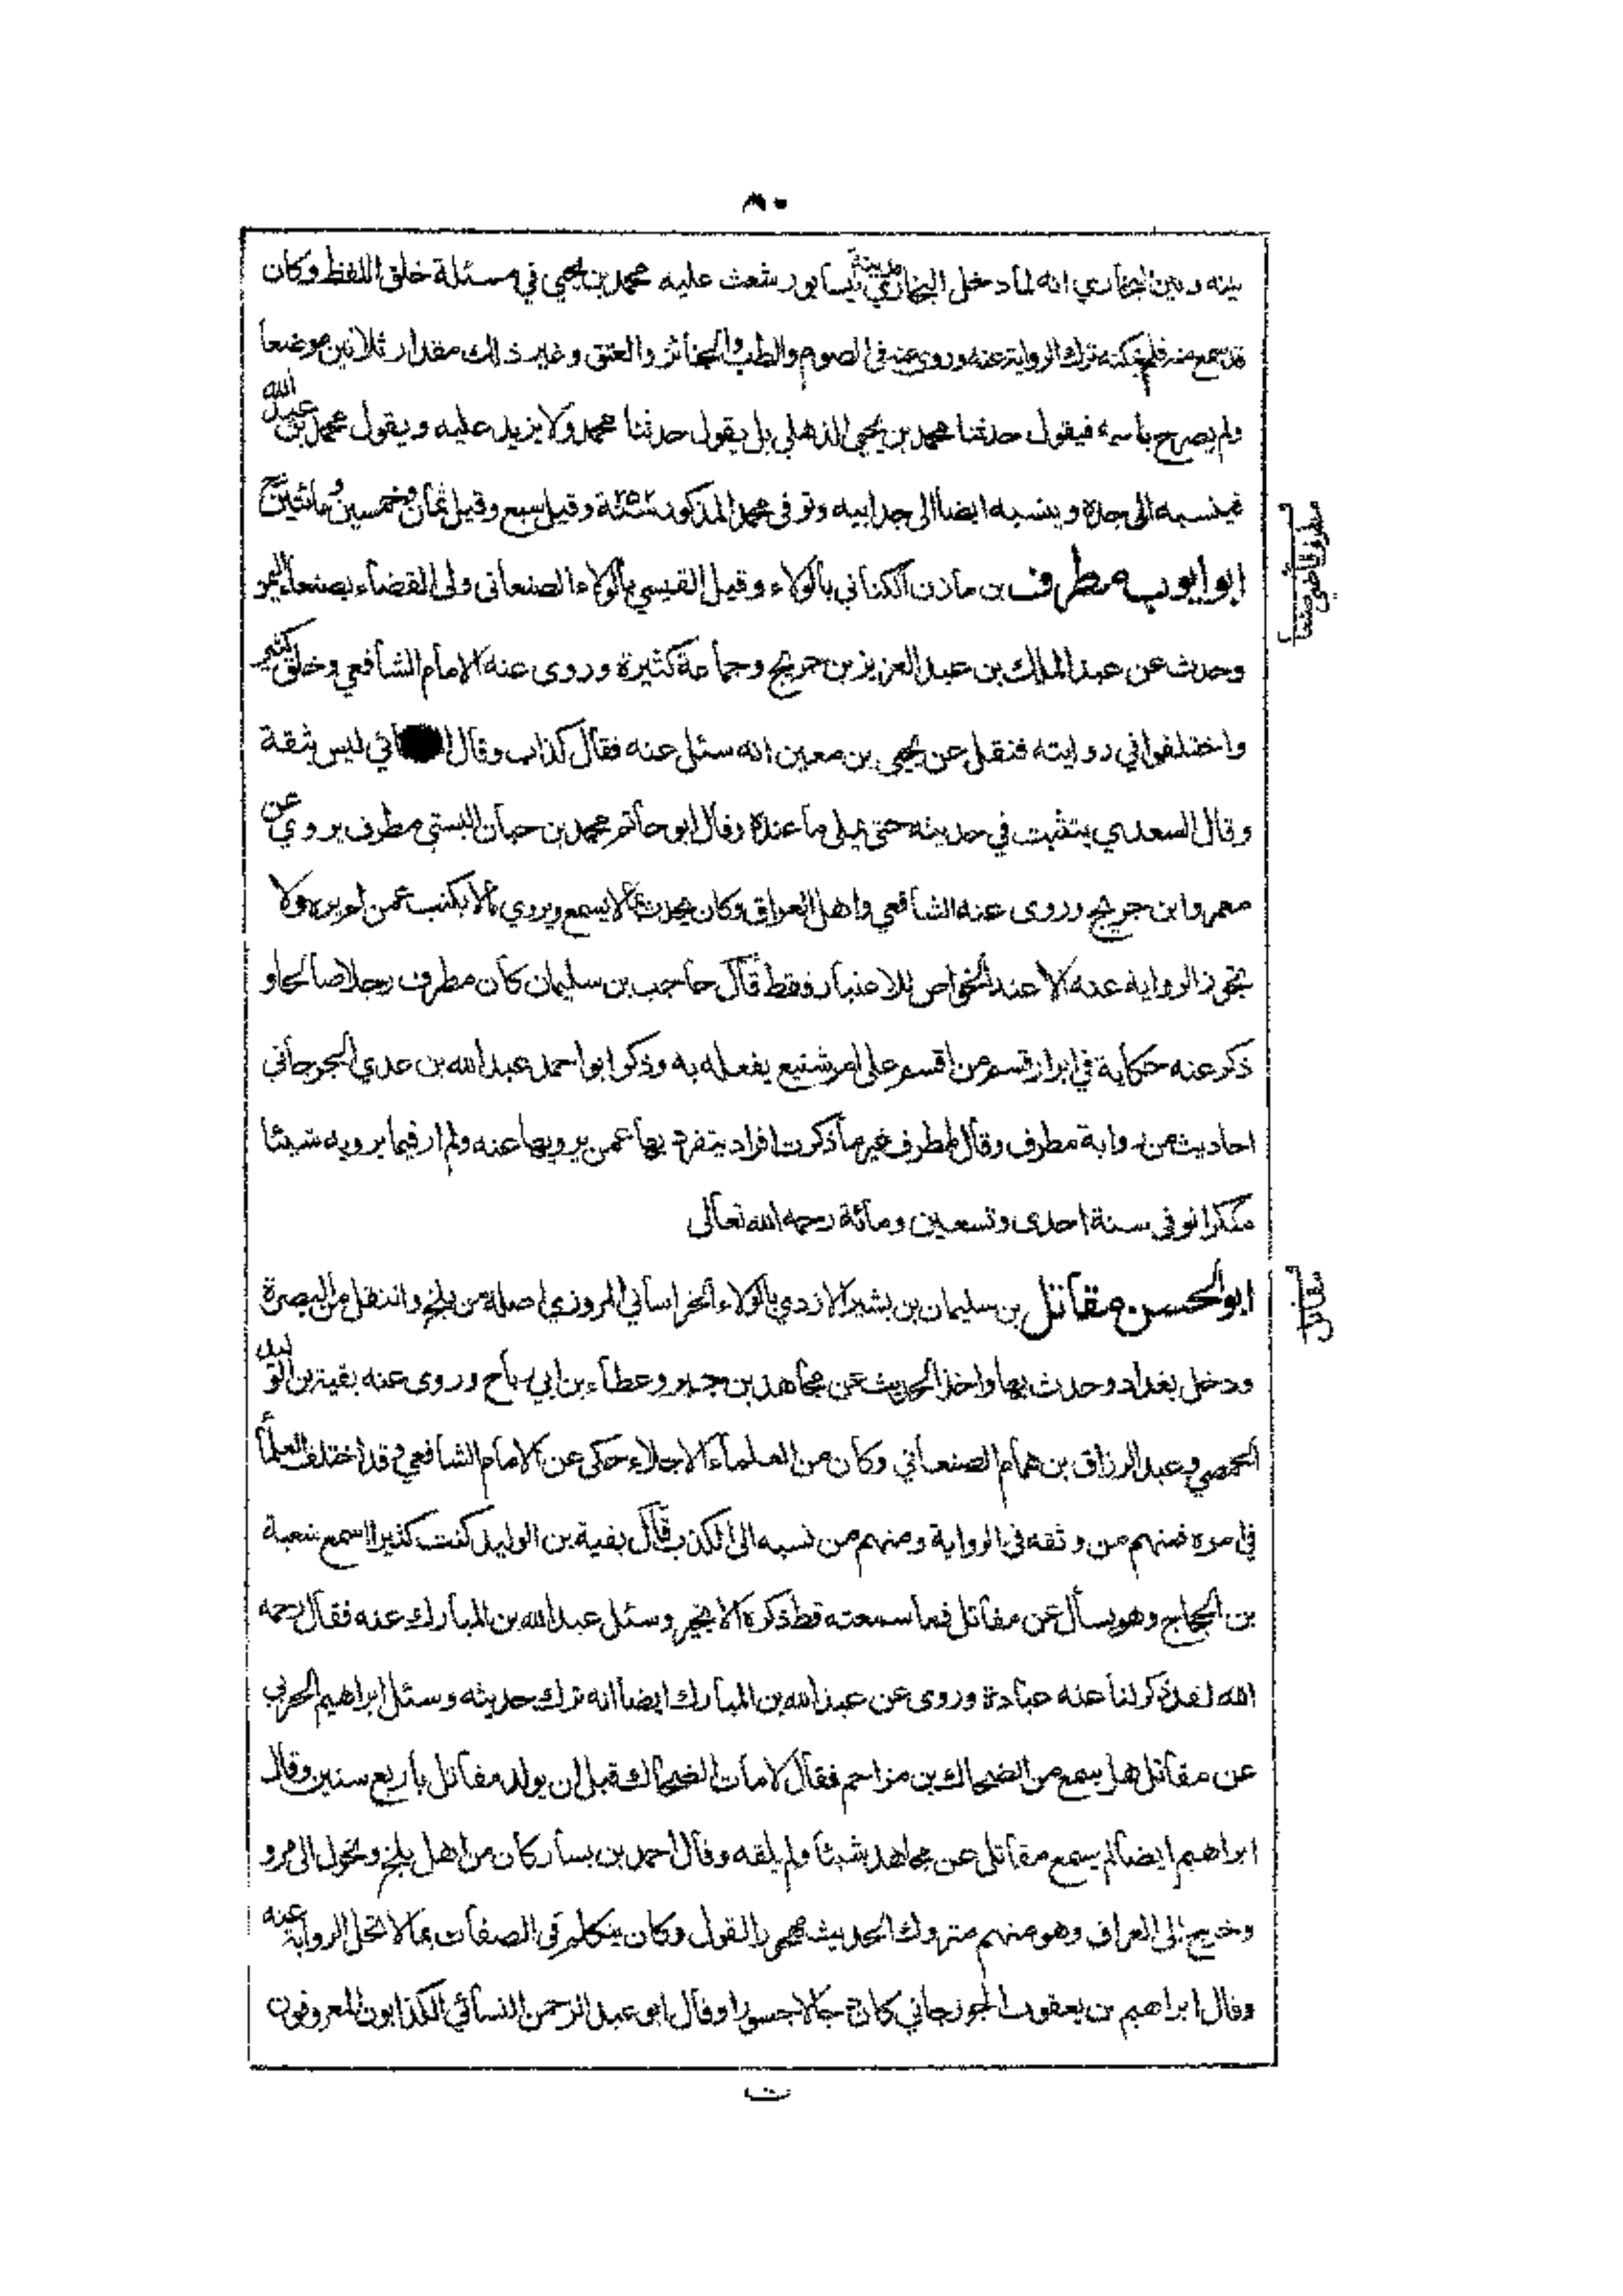 ٨٠
بينه وبين البخاري انه لما دخل البخاري مدينة نيسابور شعث عليه محمد بن يحيى في مسئلة خلق اللفظ وكان
قد سمع منه فلم يمكنه ترك الرواية عنه وروى عنه في الصوم والطب والجنائز والعتق وغير ذلك مقدار ثلاثين موضعا
ولم يصرح باسمه فيقول حدثنا محمد بن يحيى الذهلي بل يقول حدثنا محمد ولا يزيد عليه ويقول محمد بن عبد الله
فينسبه الى جده وينسبه ايضا الى جد ابيه وتوفي محمد المذكور سنة ٢٥٢ وقيل سبع وقيل ثمان وخمسين ومائتين رح
ابو ايوب مطرف بن مازن الكناني بالولاء وقيل القيسي بالولاء الصنعاني ولى القضاء بصنعا اليمن
وحدث عن عبد الملك بن عبد العزيز بن جريج وجماعة كثيرة وروى عنه الامام الشافعي وخلق كثير
واختلفوا في روايته فنقل عن يحيى بن معين انه سئل عنه فقال كذاب وقال ائي ليس بثقة
وقال السعدي يتثبت في حديثه حتى يبلى ما عنده وقال ابو حاتم محمد بن حبان البستي مطرف يروي عن
معمر وابن جريج وروى عنه الشافعي واهل العراق وكان يحدث بما لا يسمع ويروي بما لا يكتب عمن لم يره ولا
تجوز الرواية عنه الا عند الخواص للاعتبار فقط قال حاجب بن سليمان كان مطرف رجلا صالحا و
ذكر عنه حكاية في ابرار قسم من اقسم على امر شنيع يفعله به وذكر ابو احمد عبد الله بن عدي الجرجاني
احاديث من رواية مطرف وقال لمطرف غير ما ذكرت افراد يتفرد بها عمن يرويها عنه ولم ار فيما يرويه شيئا
منكرا توفى سنة احدى وتسعين ومائة رحمه الله تعالى
ابو الحسن مقاتل بن سليمان بن بشير الازدي بالولاء الخراساني المروزي اصله من بلخ وانتقل من البصرة
ودخل بغداد وحدث بها واخذ الحديث عن مجاهد بن جبر وعطاء بن ابي رباح وروى عنه بقية بن الوليد
الحمصي وعبد الرزاق بن همام الصنعاني وكان من العلماء الاجلاء حكى عن الامام الشافعي وقد اختلف العلما
في امره فمنهم من وثقه في الرواية ومنهم من نسبه الى الكذب قال بقية بن الوليد كنت كثيرا اسمع شعبة
بن الحجاج وهو يسأل عن مقاتل فما سمعته قط ذكره الا بخير وسئل عبد الله بن المبارك عنه فقال رحمه
الله لقد ذكر لنا عنه عبادة وروى عن عبد الله بن المبارك ايضا انه ترك حديثه وسئل ابراهيم الحربي
عن مقاتل هل سمع من الضحاك بن مزاحم فقال لا مات الضحاك قبل ان يولد مقاتل باربع سنين وقال
ابراهيم ايضا لم يسمع مقاتل عن مجاهد شيئا ولم يلقه وقال احمد بن يسار كان من اهل بلخ وتحول الى مرو
وخرج الى العراق وهو منهم متروك الحديث مهجور القول وكان يتكلم في الصفات بما لا تحل الرواية عنه
وقال ابراهيم بن يعقوب الجوزجاني كان دجالا جسورا وقال ابو عبد الرحمن النسائي الكذابون المعروفون
مطرف قاضي صنعا
مقاتل
ت